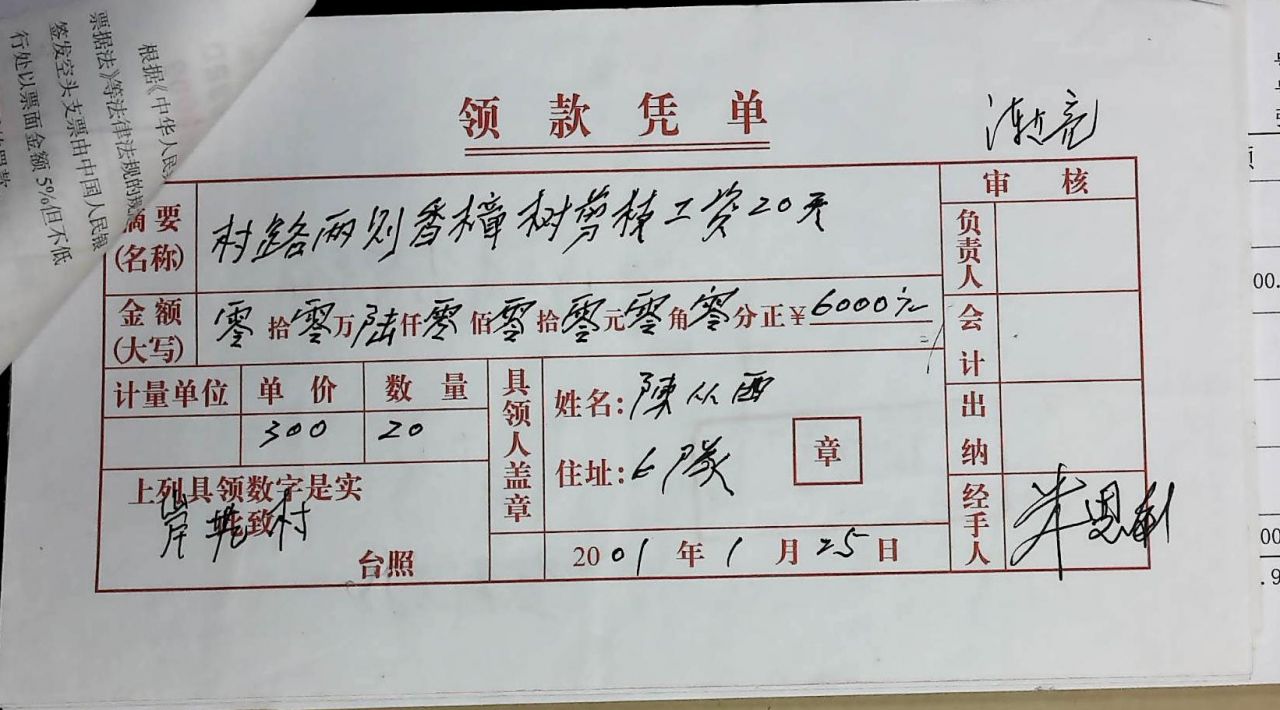 根据《中华人民
票据法》等法律法规的规
签发空头支票由中国人民银
行处以票面金额5%但不低
领款凭单
摘要(名称) 村路两则香樟树剪枝工资20天
金额(大写) 零拾零万陆仟零佰零拾零元零角零分正¥6000元
计量单位 单价 数量
300 20
上列具领数字是实
此致
村
台照
具领人盖章
姓名:陳从西
住址:6隊
章
2001年1月25日
审核
负责人
会计
出纳
经手人